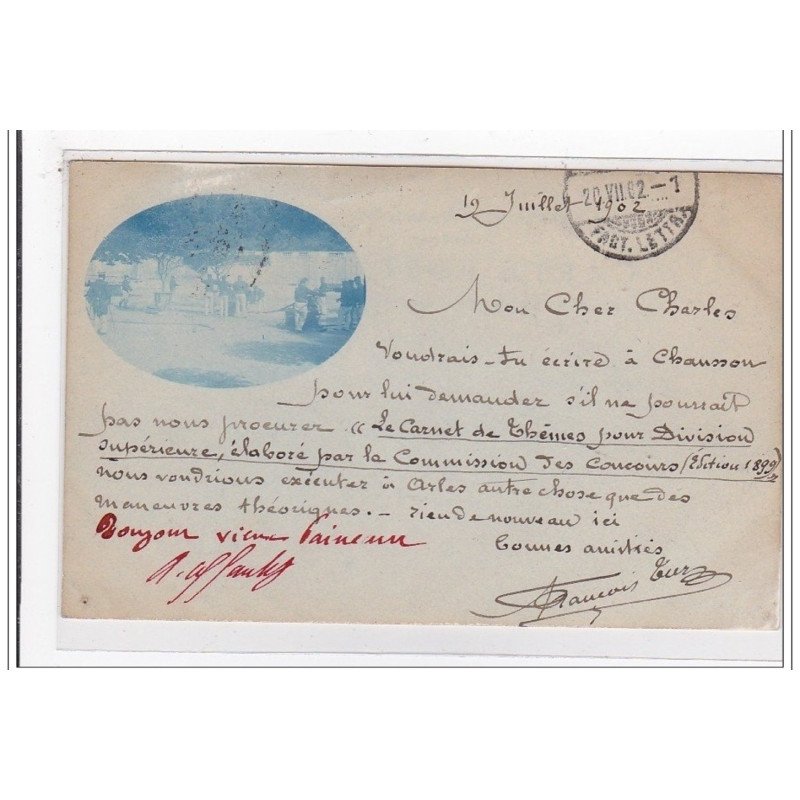 19 Juillet 1902
20.VII.02.–7
FACT. LETTR.
Mon Cher Charles
Voudrais-tu écrire à Chausson
pour lui demander s'il ne pourrait
pas nous procurer « Le Carnet de Thêmes pour Division
supérieure, élaboré par la Commission des Concours (Edition 1899)
nous voudrions exécuter à Arles autre chose que des
maneuvres théoriques. — rien de nouveau ici
Bonjour vieux
bonnes amitiés
François